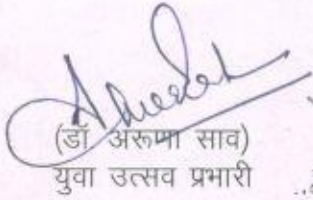 (डॉ अरूणा साव)
युवा उत्सव प्रभारी